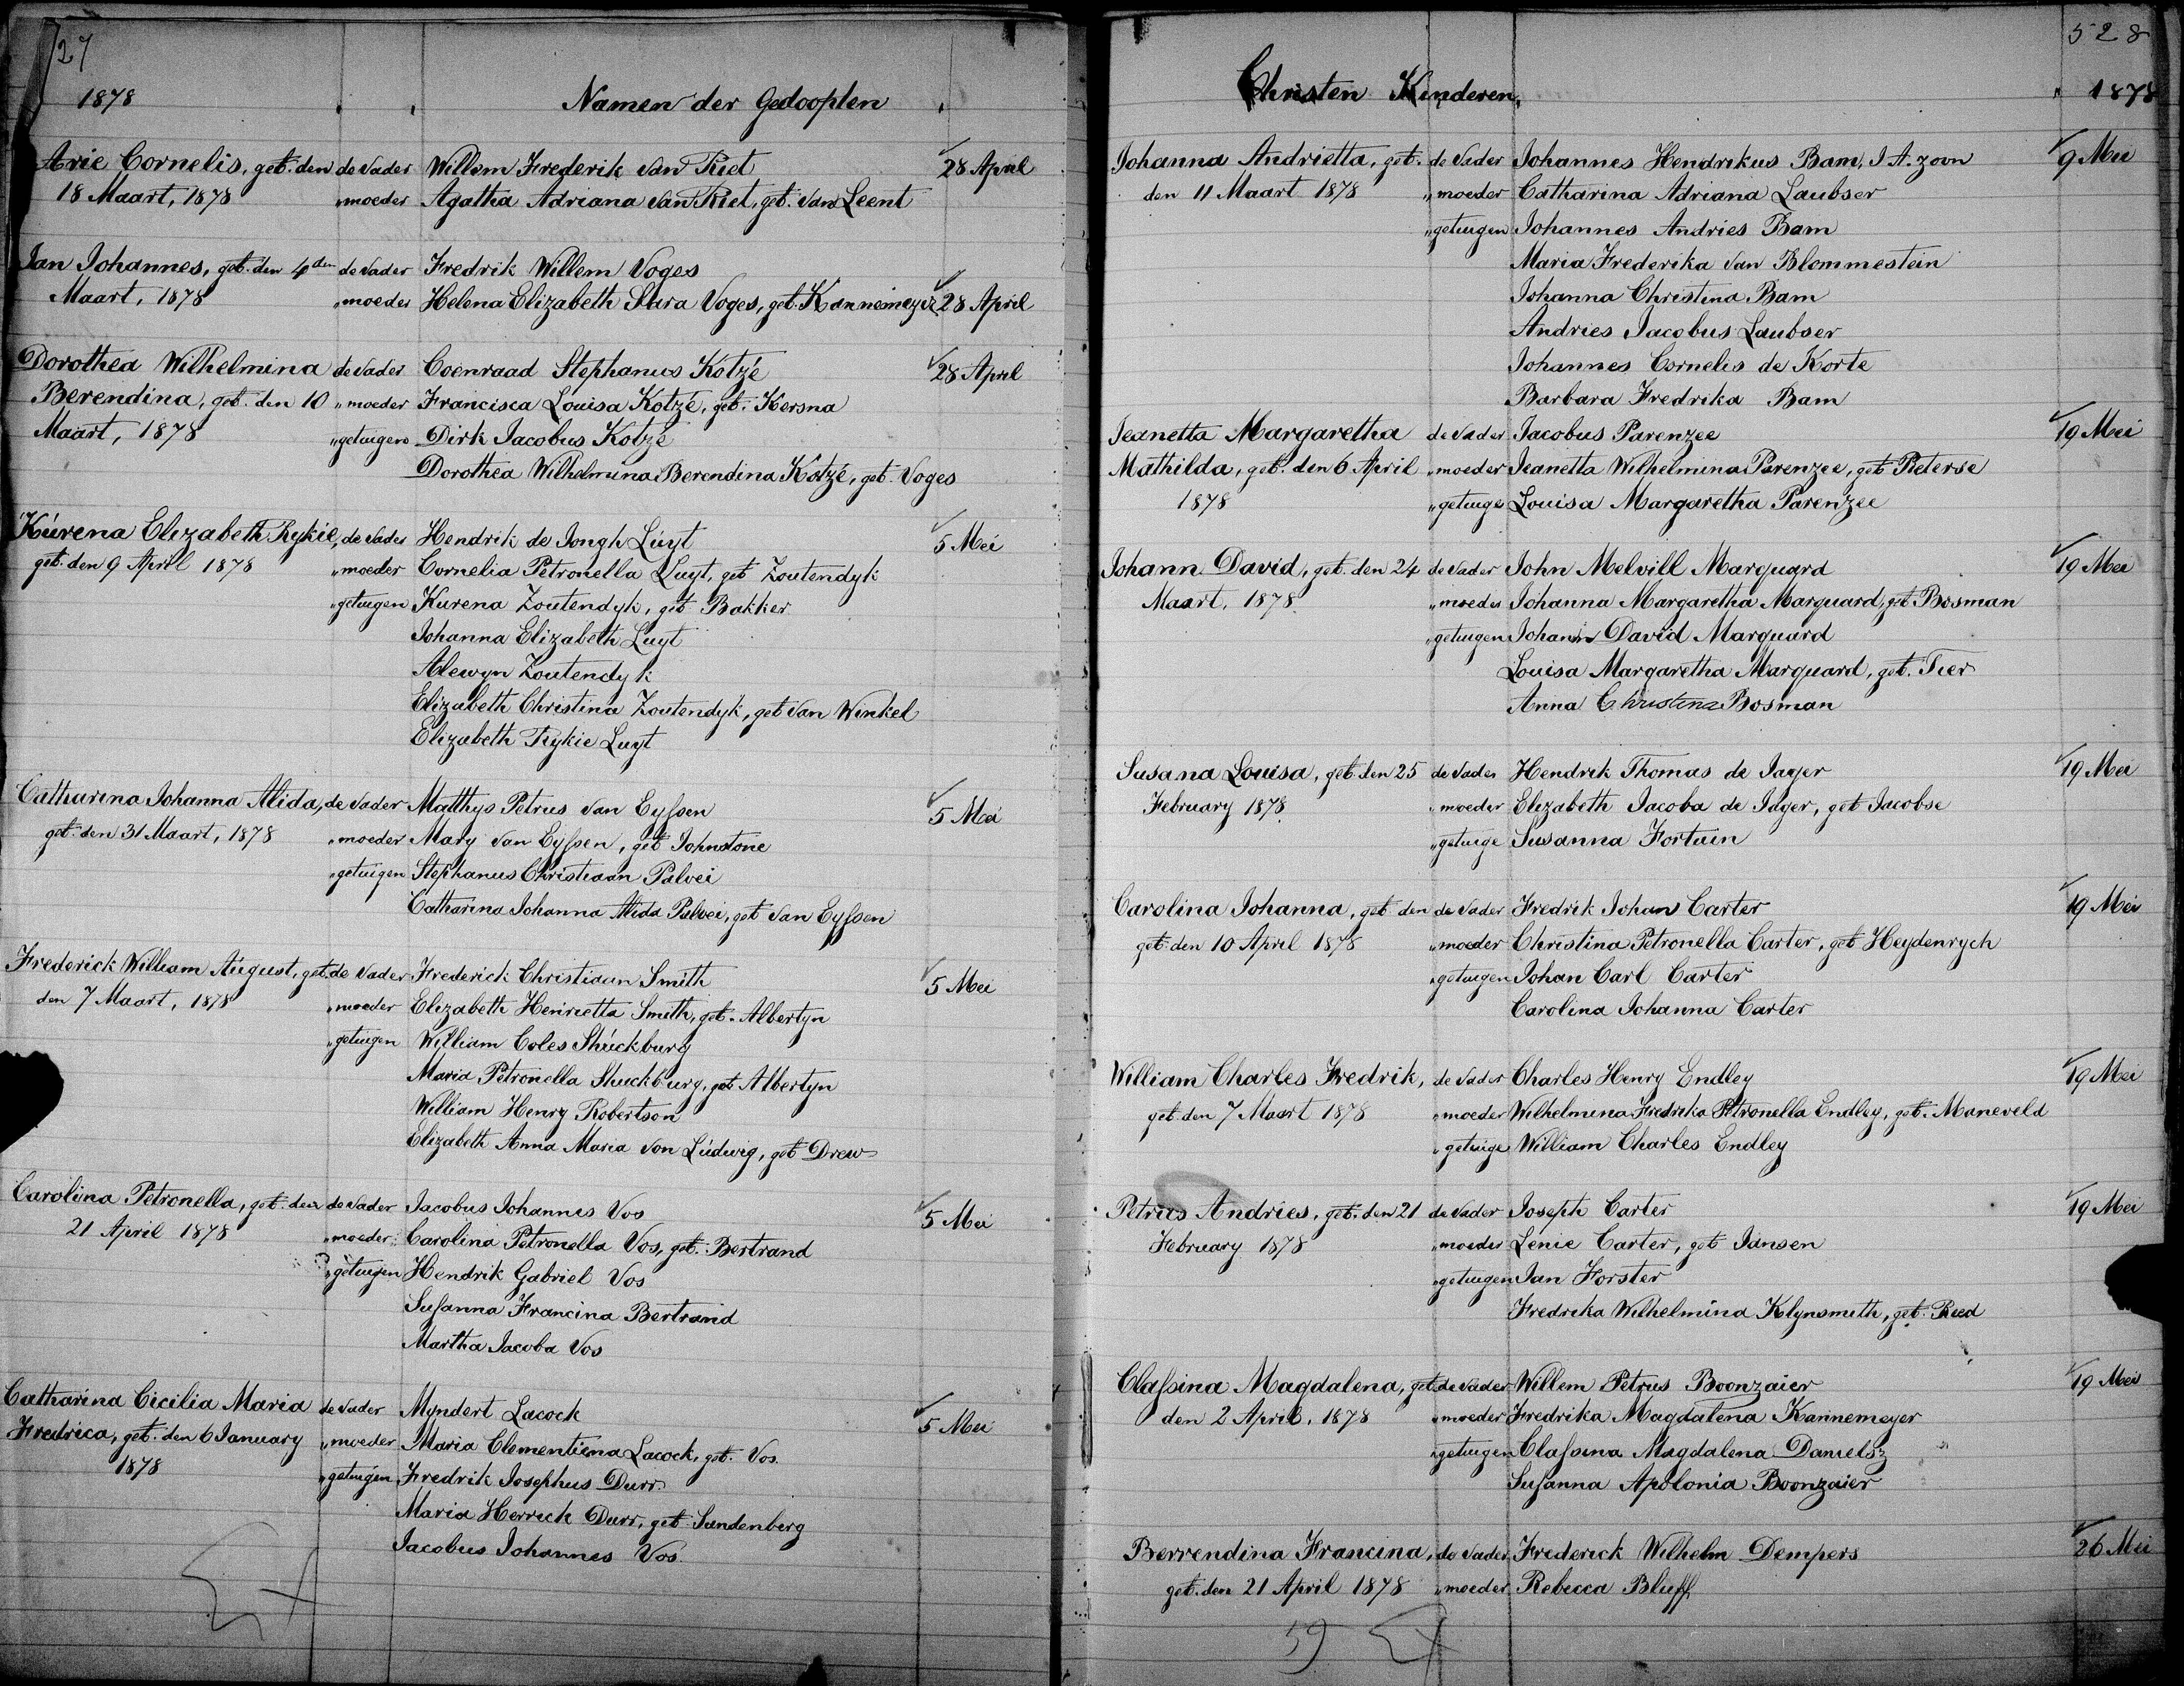 27
1878 Namen der Gedoopten
Arie Cornelis, geb. den de Vader Willem Frederik van Riet 28 April
18 Maart, 1878 „ moeder Agatha Adriana van Riet, geb. van Leent
Jan Johannes, geb. den 4den de Vader Fredrik Willem Voges
Maart, 1878 „ moeder Helena Elizabeth Sara Voges, geb. Kannemeyer 28 April
Dorothea Wilhelmina de Vader Coenraad Stephanus Kotzé 28 April
Berendina, geb. den 10 „ moeder Francisca Louisa Kotzé, geb. Kersna
Maart, 1878 „ getuigen Dirk Jacobus Kotzé
Dorothea Wilhelmina Berendina Kotzé, geb. Voges
Kúrena Elizabeth Rykie, de Vader Hendrik de Jongh Lúyt 5 Mei
geb. den 9 April 1878 „ moeder Cornelia Petronella Luyt, geb Zoutendyk
„ getuigen Kurena Zoutendyk, geb Bakker
Johanna Elizabeth Luyt
Alewyn Zoutendyk
Elizabeth Christina Zoutendyk, geb van Winkel
Elizabeth Rykie Luyt
Catharina Johanna Alida, de Vader Matthys Petrus van Eyssen 5 Mei
geb. den 31 Maart, 1878 „ moeder Mary van Eyssen, geb Johnstone
„ getuigen Stephanus Christiaan Palvei
Catharina Johanna Alida Palvei, geb van Eyssen
Frederick William August, geb. de Vader Frederick Christiaan Smith 5 Mei
den 7 Maart, 1878 „ moeder Elizabeth Henrietta Smith, geb. Albertyn
„ getuigen William Coles Shúckburg
Maria Petronella Shuckburg, geb Albertyn
William Henry Robertson
Elizabeth Anna Maria von Lúdwig, geb Drew
Carolina Petronella, geb. den de Vader Jacobus Johannes Vos 5 Mei
21 April 1878 „ moeder Carolina Petronella Vos, geb. Bertrand
„ getuigen Hendrik Gabriel Vos
Susanna Francina Bertrand
Martha Jacoba Vos
Catharina Cicilia Maria de Vader Myndert Lacock 5 Mei
Fredrica, geb. den 6 January „ moeder Maria Clementiena Lacock, geb. Vos.
1878 „ getuigen Fredrik Josephus Durr
Maria Herrick Durr, geb Sandenberg
Jacobus Johannes Vos
528
Christen Kinderen, 1878
Johanna Andrietta, geb. de Vader Johannes Hendrikus Bam, J. A. zoon 9 Mei
den 11 Maart 1878 „ moeder Catharina Adriana Laubser
„ getuigen Johannes Andries Bam
Maria Frederika van Blommestein
Johanna Christina Bam
Andries Jacobus Laubser
Johannes Cornelis de Korte
Barbara Fredrika Bam
Jeanetta Margaretha de Vader Jacobus Parenzee 19 Mei
Mathilda, geb. den 6 April „ moeder Jeanetta Wilhelmina Parenzee, geb Pieterse
1878 „ getuige Louisa Margaretha Parenzee
Johann David, geb. den 24 de Vader John Melvill Marquard 19 Mei
Maart, 1878. „ moeder Johanna Margaretha Marquard, geb Bosman
„ getuigen Johann David Marquard
Louisa Margaretha Marquard, geb. Tier
Anna Christina Bosman
Susana Louisa, geb. den 25 de Vader Hendrik Thomas de Jager 19 Mei
February 1878. „ moeder Elizabeth Jacoba de Jager, geb Jacobse
„ getuige Susanna Fortuin
Carolina Johanna, geb. den de Vader Fredrik Johan Carter 19 Mei
geb. den 10 April 1878 „ moeder Christina Petronella Carter, geb Heydenrych
„ getuigen Johan Carl Carter
Carolina Johanna Carter
William Charles Fredrik, de Vader Charles Henry Endley 19 Mei
geb. den 7 Maart 1878 „ moeder Wilhelmina Fredrika Petronella Endley, geb. Maneveld
„ getuige William Charles Endley
Petrus Andries, geb. den 21 de Vader Joseph Carter 19 Mei
February 1878 „ moeder Lenie Carter, geb Jansen
„ getuigen Jan Forster
Fredrika Wilhelmina Klynsmith, geb. Reed
Classina Magdalena, geb. de Vader Willem Petrus Boonzaier 19 Mei
den 2 April, 1878 „ moeder Fredrika Magdalena Kannemeyer
„ getuigen Classina Magdalena Danielsz
Susanna Apolonia Boonzaier
Berrendina Francina, de Vader Frederick Wilhelm Dempers 26 Mei
geb. den 21 April 1878 „ moeder Rebecca Bluff
59